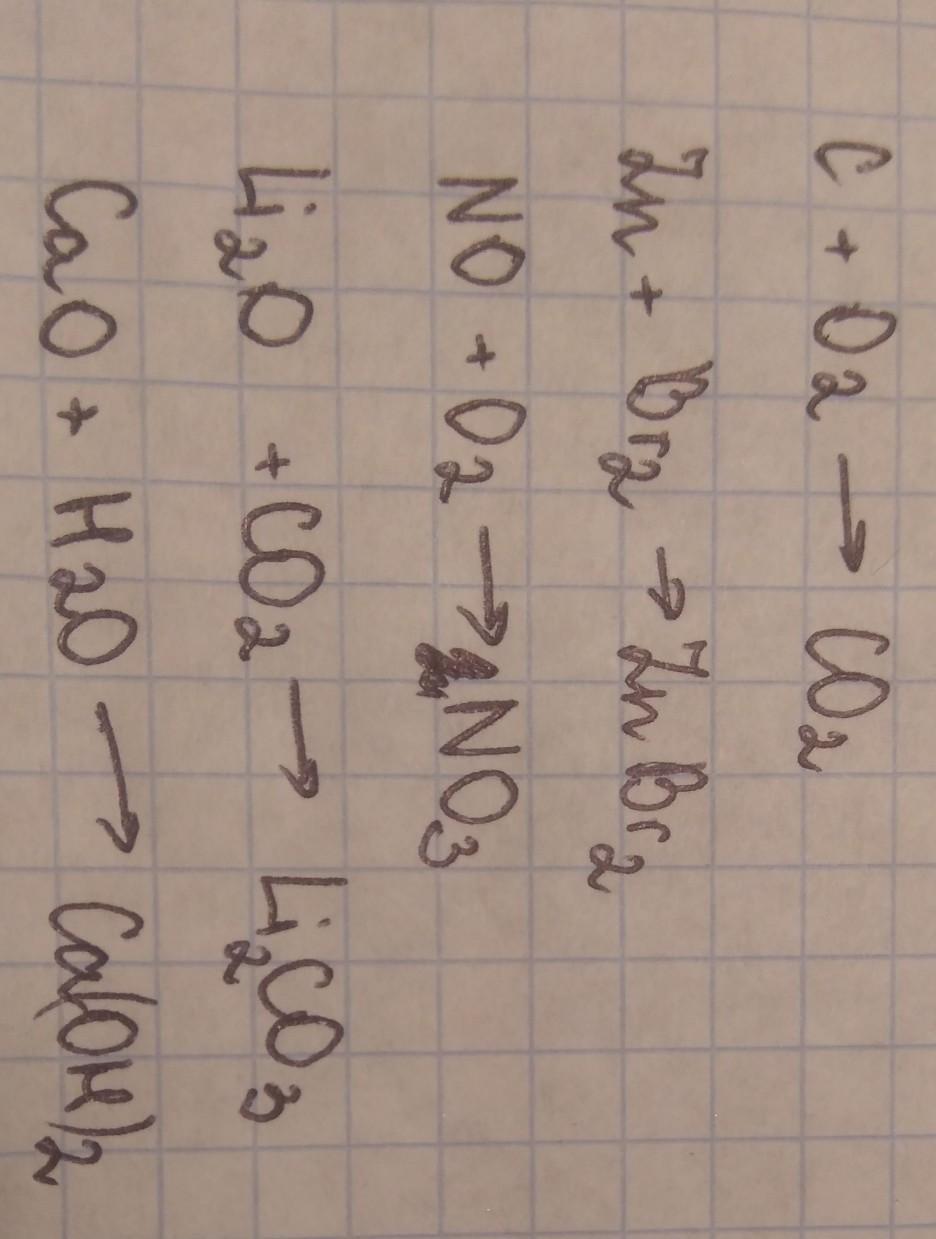 C + O₂ → CO₂
Zn + Br₂ → ZnBr₂
NO + O₂ → NO₃
Li₂O + CO₂ → Li₂CO₃
CaO + H₂O → Ca(OH)₂